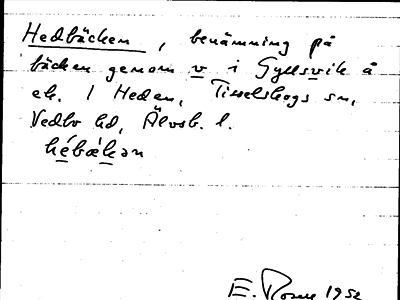 Hedbäcken, benämning på
bäcken genom v i Gyllsvik å
ek. 1 Heden, Tisselskogs sn,
Vedbo hd, Älvsb. l.
hébækən
E. Rosen 1952